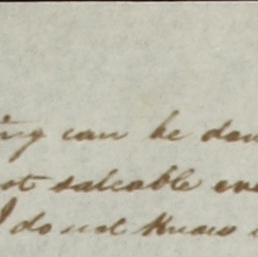 ing can be don
ot saleable eve
I do not know